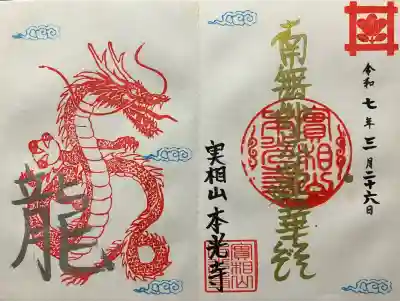 令和七年三月二十六日
南無妙法蓮華経
實相山
実相山本光寺
實相山
龍